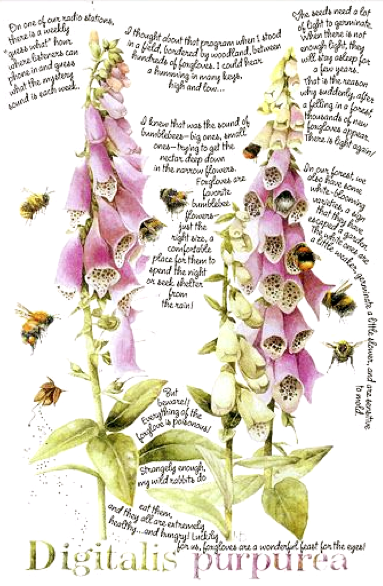 On one of our radio stations,
there is a weekly
"guess what" hour
where listeners can
phone in and guess
what the mystery
sound is each week...
I thought about that program when I stood
in a field, bordered by woodland, between
hundreds of foxgloves. I could hear
a humming in many keys,
high and low...
I knew that was the sound of
bumblebees—big ones, small
ones—trying to get the
nectar deep down
in the narrow flowers.
Foxgloves are
favorite
bumblebee
flowers—
just the
right size, a
comfortable
place for them to
spend the night
or seek shelter
from
the rain!
The seeds need a lot
of light to germinate.
When there is not
enough light, they
will stay asleep for
a few years.
That is the reason
why suddenly, after
a felling in a forest,
thousands of new
foxgloves appear.
There is light again!
In our forest, we
also have some
white-blooming
varieties, a sign
that they have
escaped a garden.
The white ones are
a little weaker, germinate a little slower, and are sensitive
to mold.
But
beware!!
Everything of the
foxglove is poisonous!
Strangely enough,
my wild rabbits do
eat them,
and they all are extremely
healthy...and hungry! Luckily
for us, foxgloves are a wonderful feast for the eyes!
Digitalis purpurea